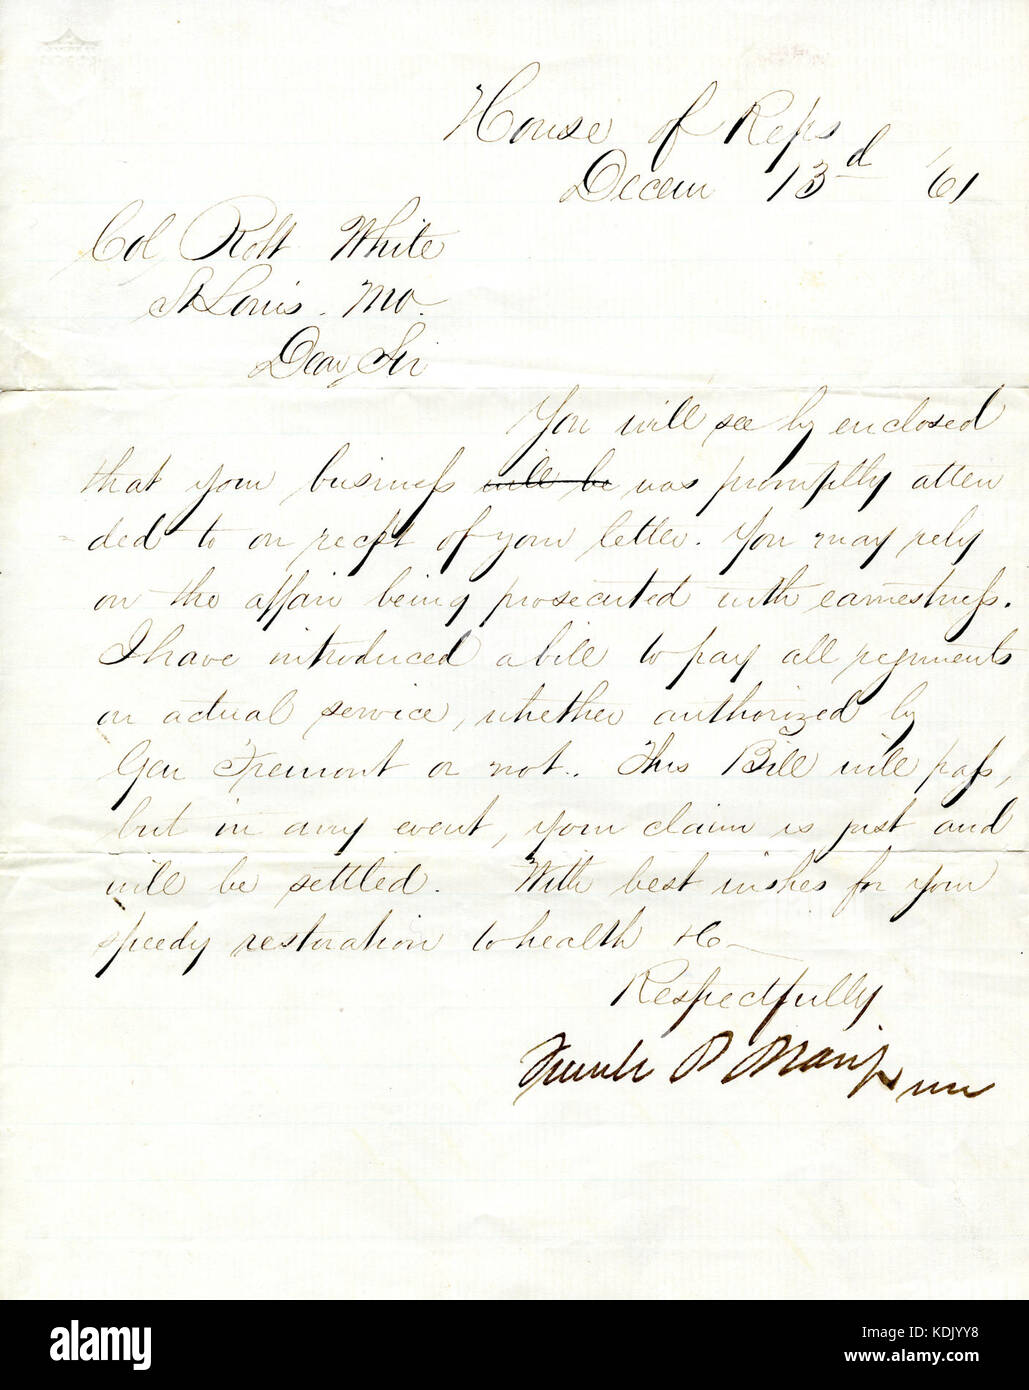 House of Reps
Decem 13d '61
Col Robt White
St Louis. Mo.
Dear Sir
You will see by enclosed
that your business will be was promptly atten
ded to on rec'pt of your letter. You may rely
on the affair being prosecuted with earnestness.
I have introduced a bill to pay all regiments
on actual service, whether authorized by
Gen Fremont or not. This Bill will pass,
but in any event, your claim is just and
will be settled. With best wishes for your
speedy restoration to health &c
Respectfully
P
alamy
Image ID: KDJYY8
www.alamy.com